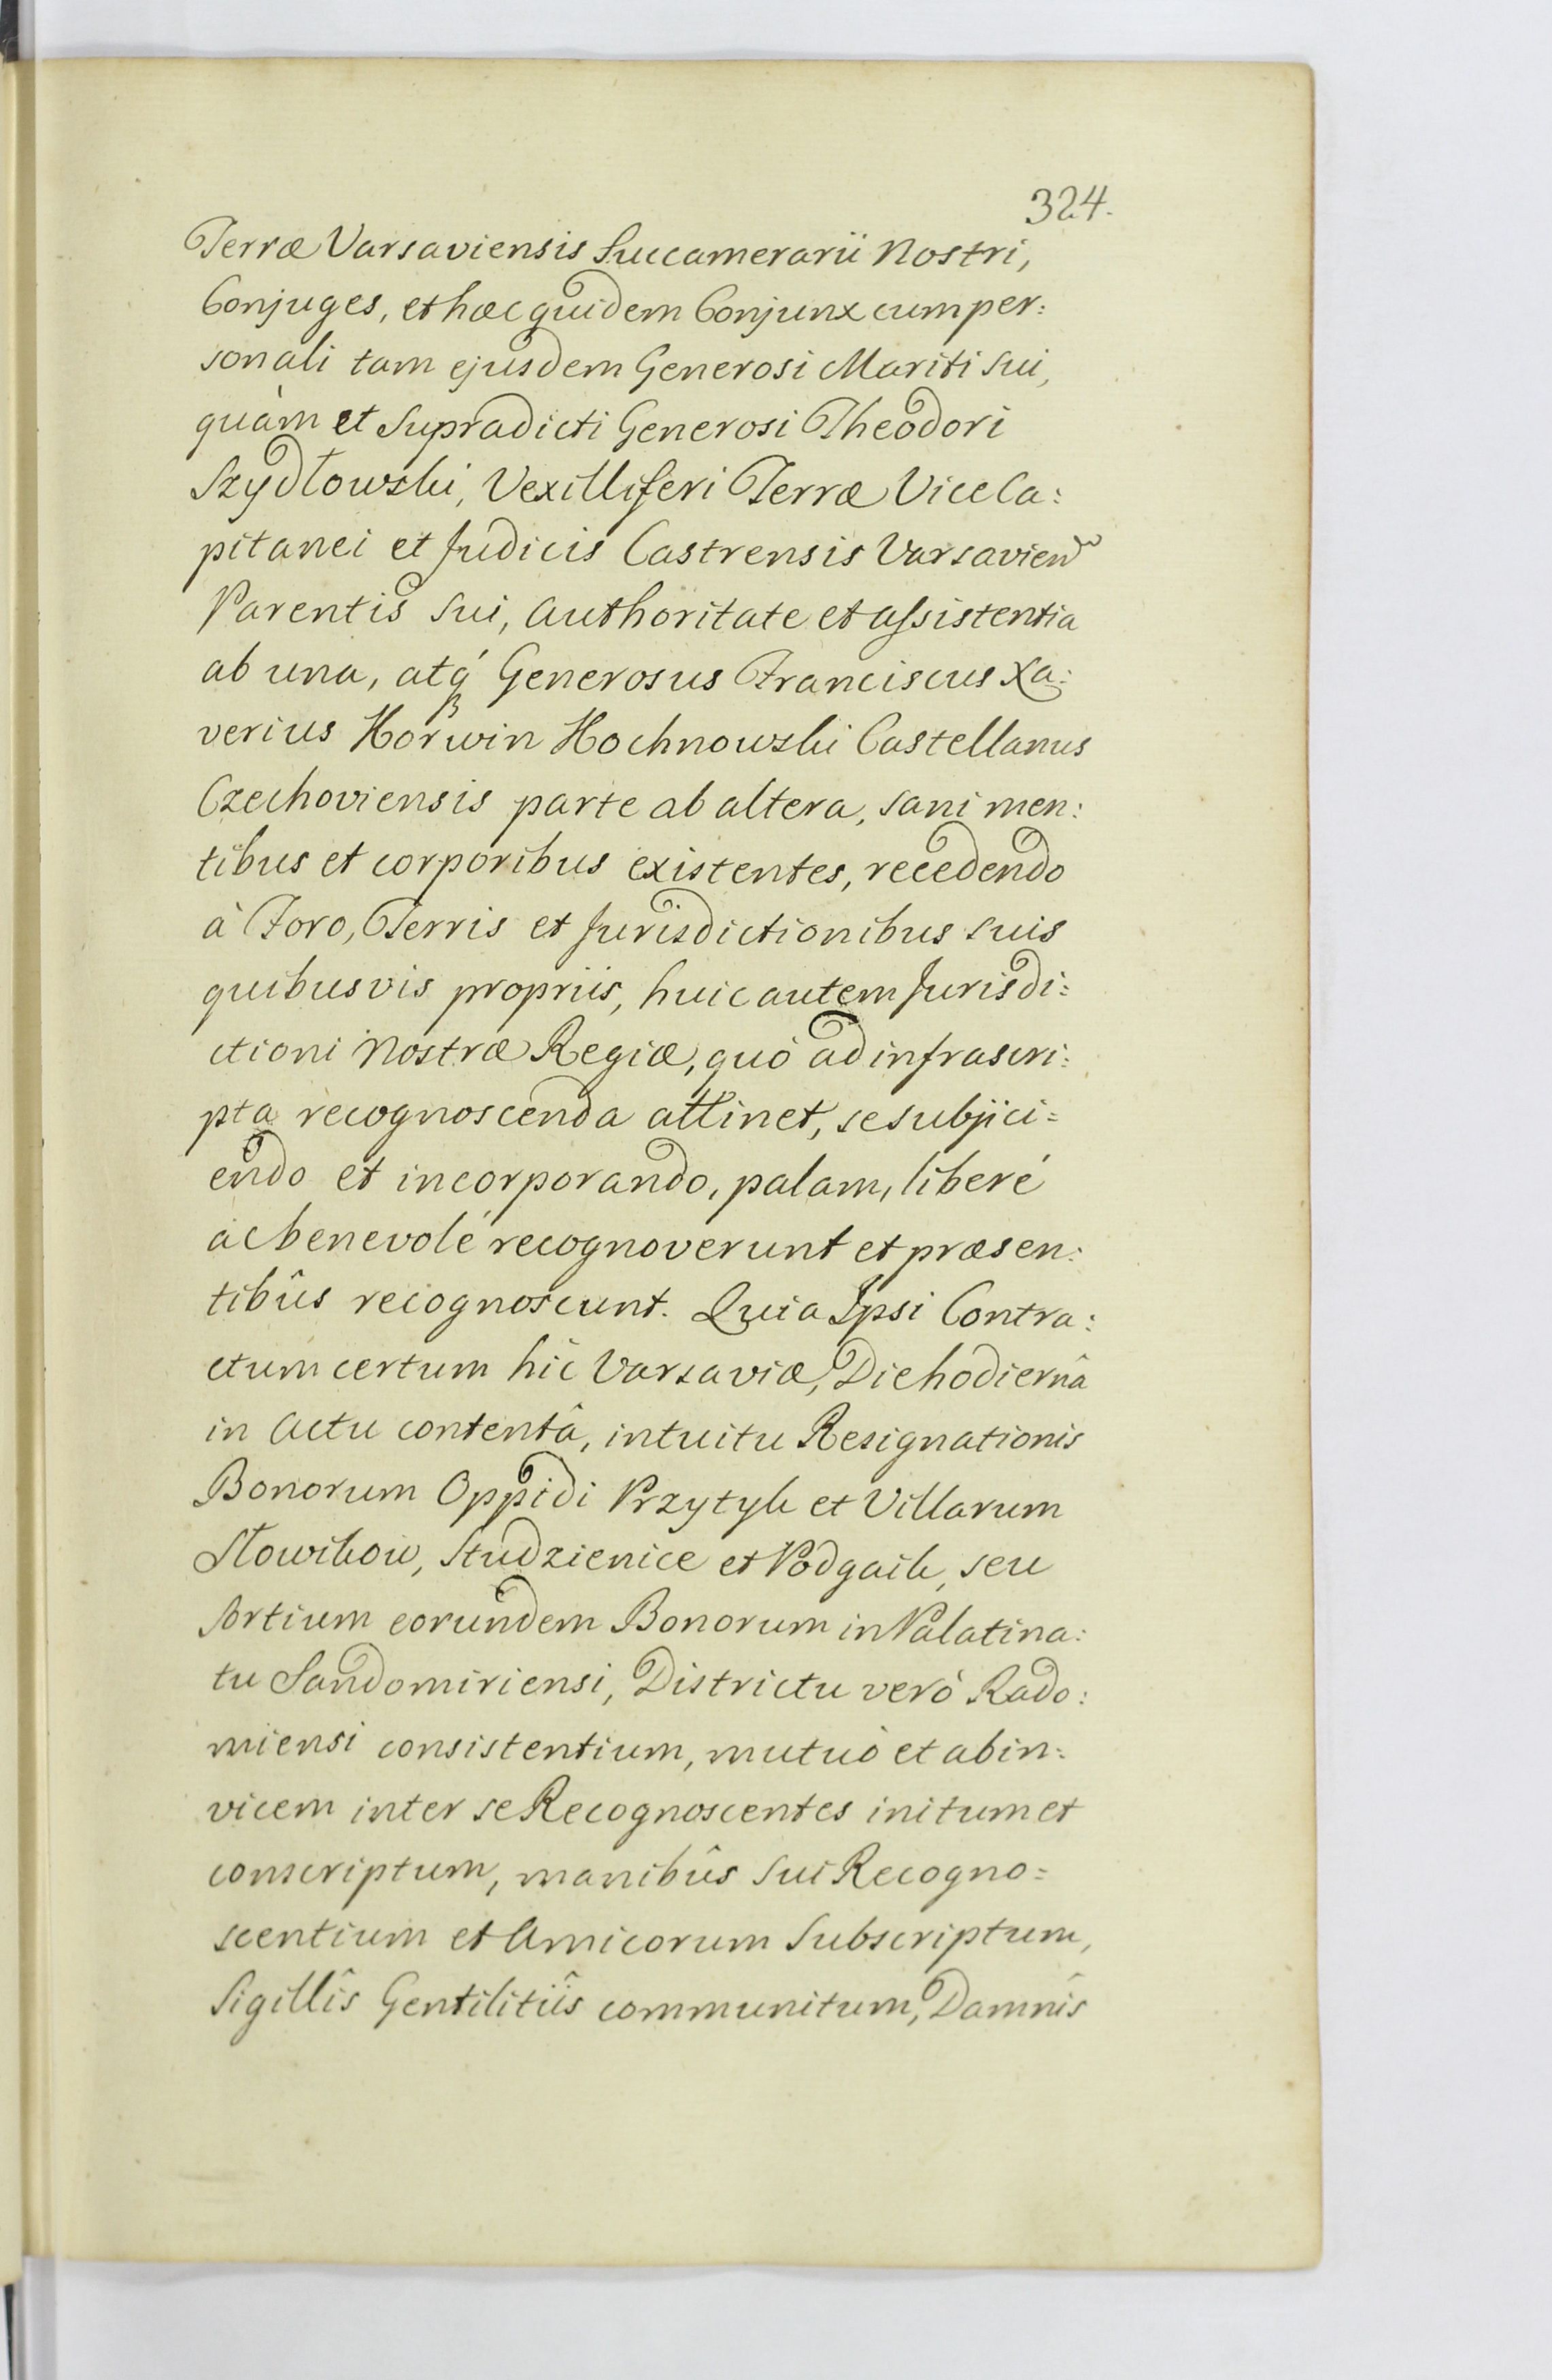 324.
Terræ Varsaviensis Succamerarii Nostri,
Conjuges, et hæc quidem Conjunx cum per:
sonali tam ejusdem Generosi Mariti sui,
quàm et supradicti Generosi Theodori
Szydłowski, Vexilliferi Terræ ViceCa:
pitanei et Judicis Castrensis Varsavien
Parentis sui, authoritate et assistentia
ab una, atq́ Generosus Franciscus Xa:
verius Korwin Kochnowski Castellanus
Czechoviensis parte ab altera, sani men:
tibus et corporibus existentes, recedendo
à Foro, Terris et Jurisdictionibus suis
quibusvis propriis, huic autem Jurisdi:
ctioni Nostræ Regiæ, quò ad infrascri:
pta recognoscenda attinet, se subjici=
endo et incorporando, palam, liberé
ac benevolé recognoverunt et præsen:
tibûs recognoscunt. Quia Ipsi Contra:
ctum certum hîc Varsaviæ, Die hodiernâ
in Actu contentâ, intuitu Resignationis
Bonorum Oppidi Przytyk et Villarum
Słowików, Studzienice et Podgaik, seu
sortium eorundem Bonorum in Palatina:
tu Sandomiriensi, Districtu verò Rado:
miensi consistentium, mutuò et abin:
vicem inter se Recognoscentes initum et
conscriptum, manibûs sui Recogno=
scentium et Amicorum Subscriptum,
Sigillîs Gentilitiîs communitum, Damnîs